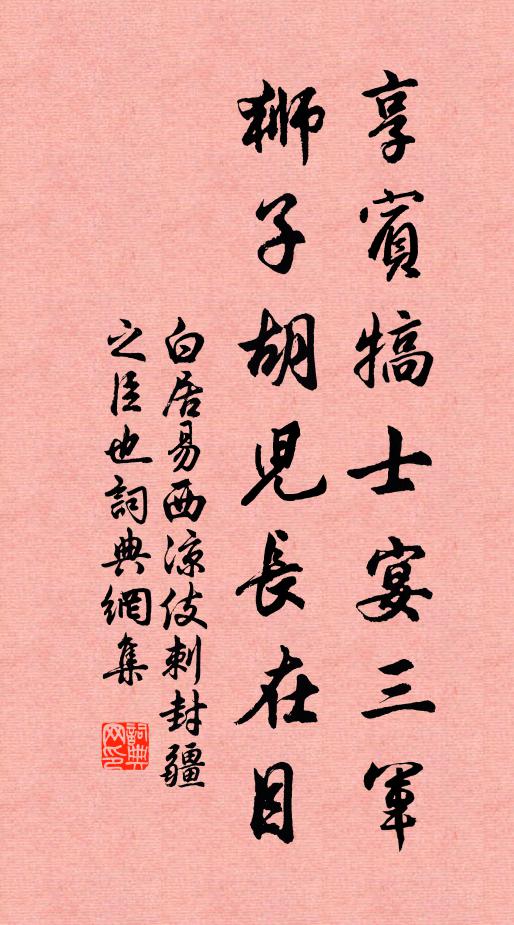 享賓犒士宴三軍
獅子胡兒長在目
白居易西涼伎刺封疆
之臣也詞典網集
詞典网印